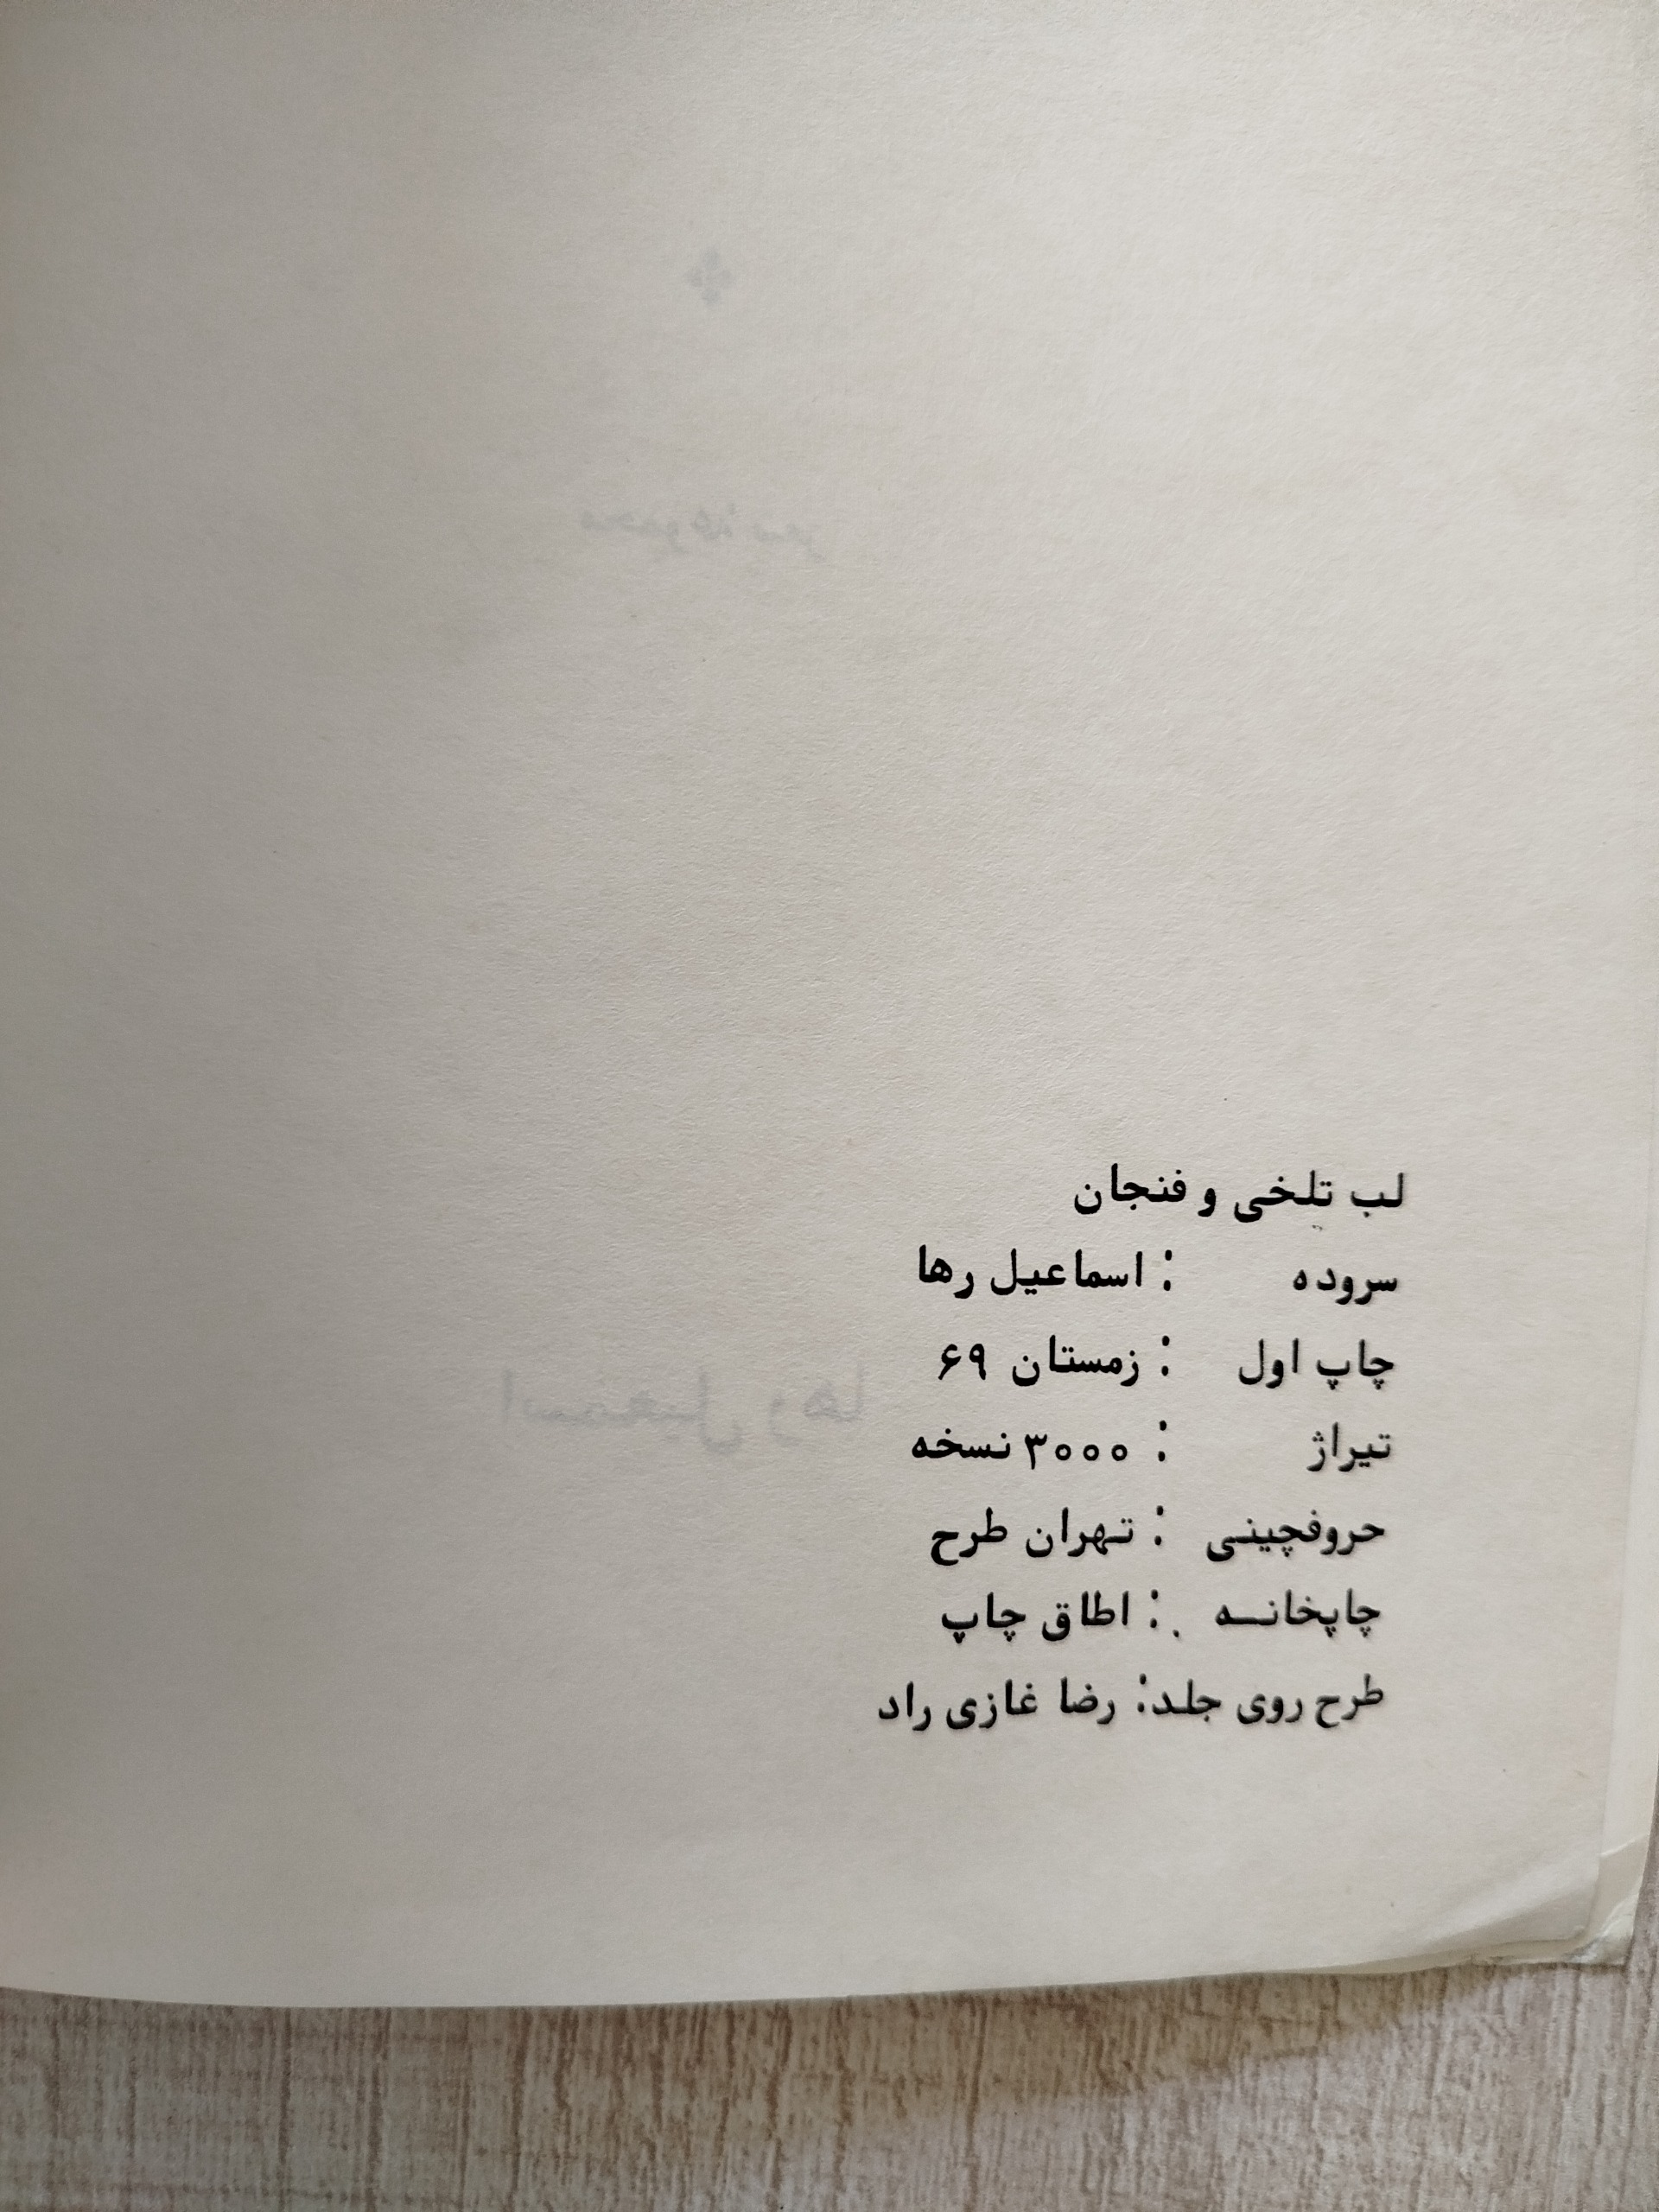 لب تلخی و فنجان
سروده : اسماعیل رها
چاپ اول : زمستان ۶۹
تیراژ : ۳۰۰۰ نسخه
حروفچینی : تهران طرح
چاپخانه : اطاق چاپ
طرح روی جلد: رضا غازی راد